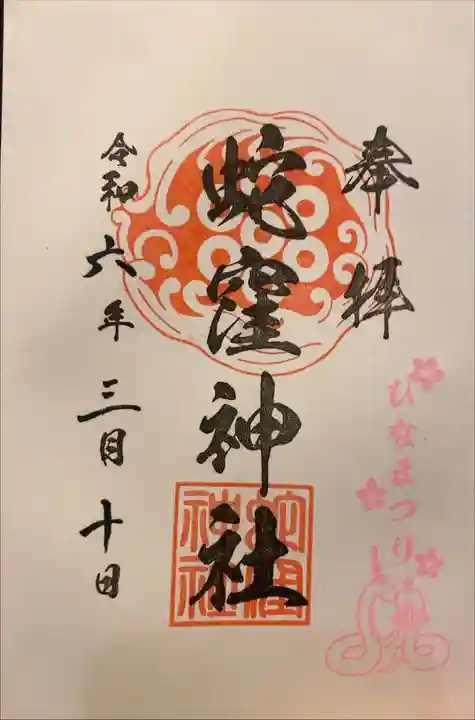 奉拝
蛇窪神社
蛇窪神社
令和六年三月十日
ひなまつり